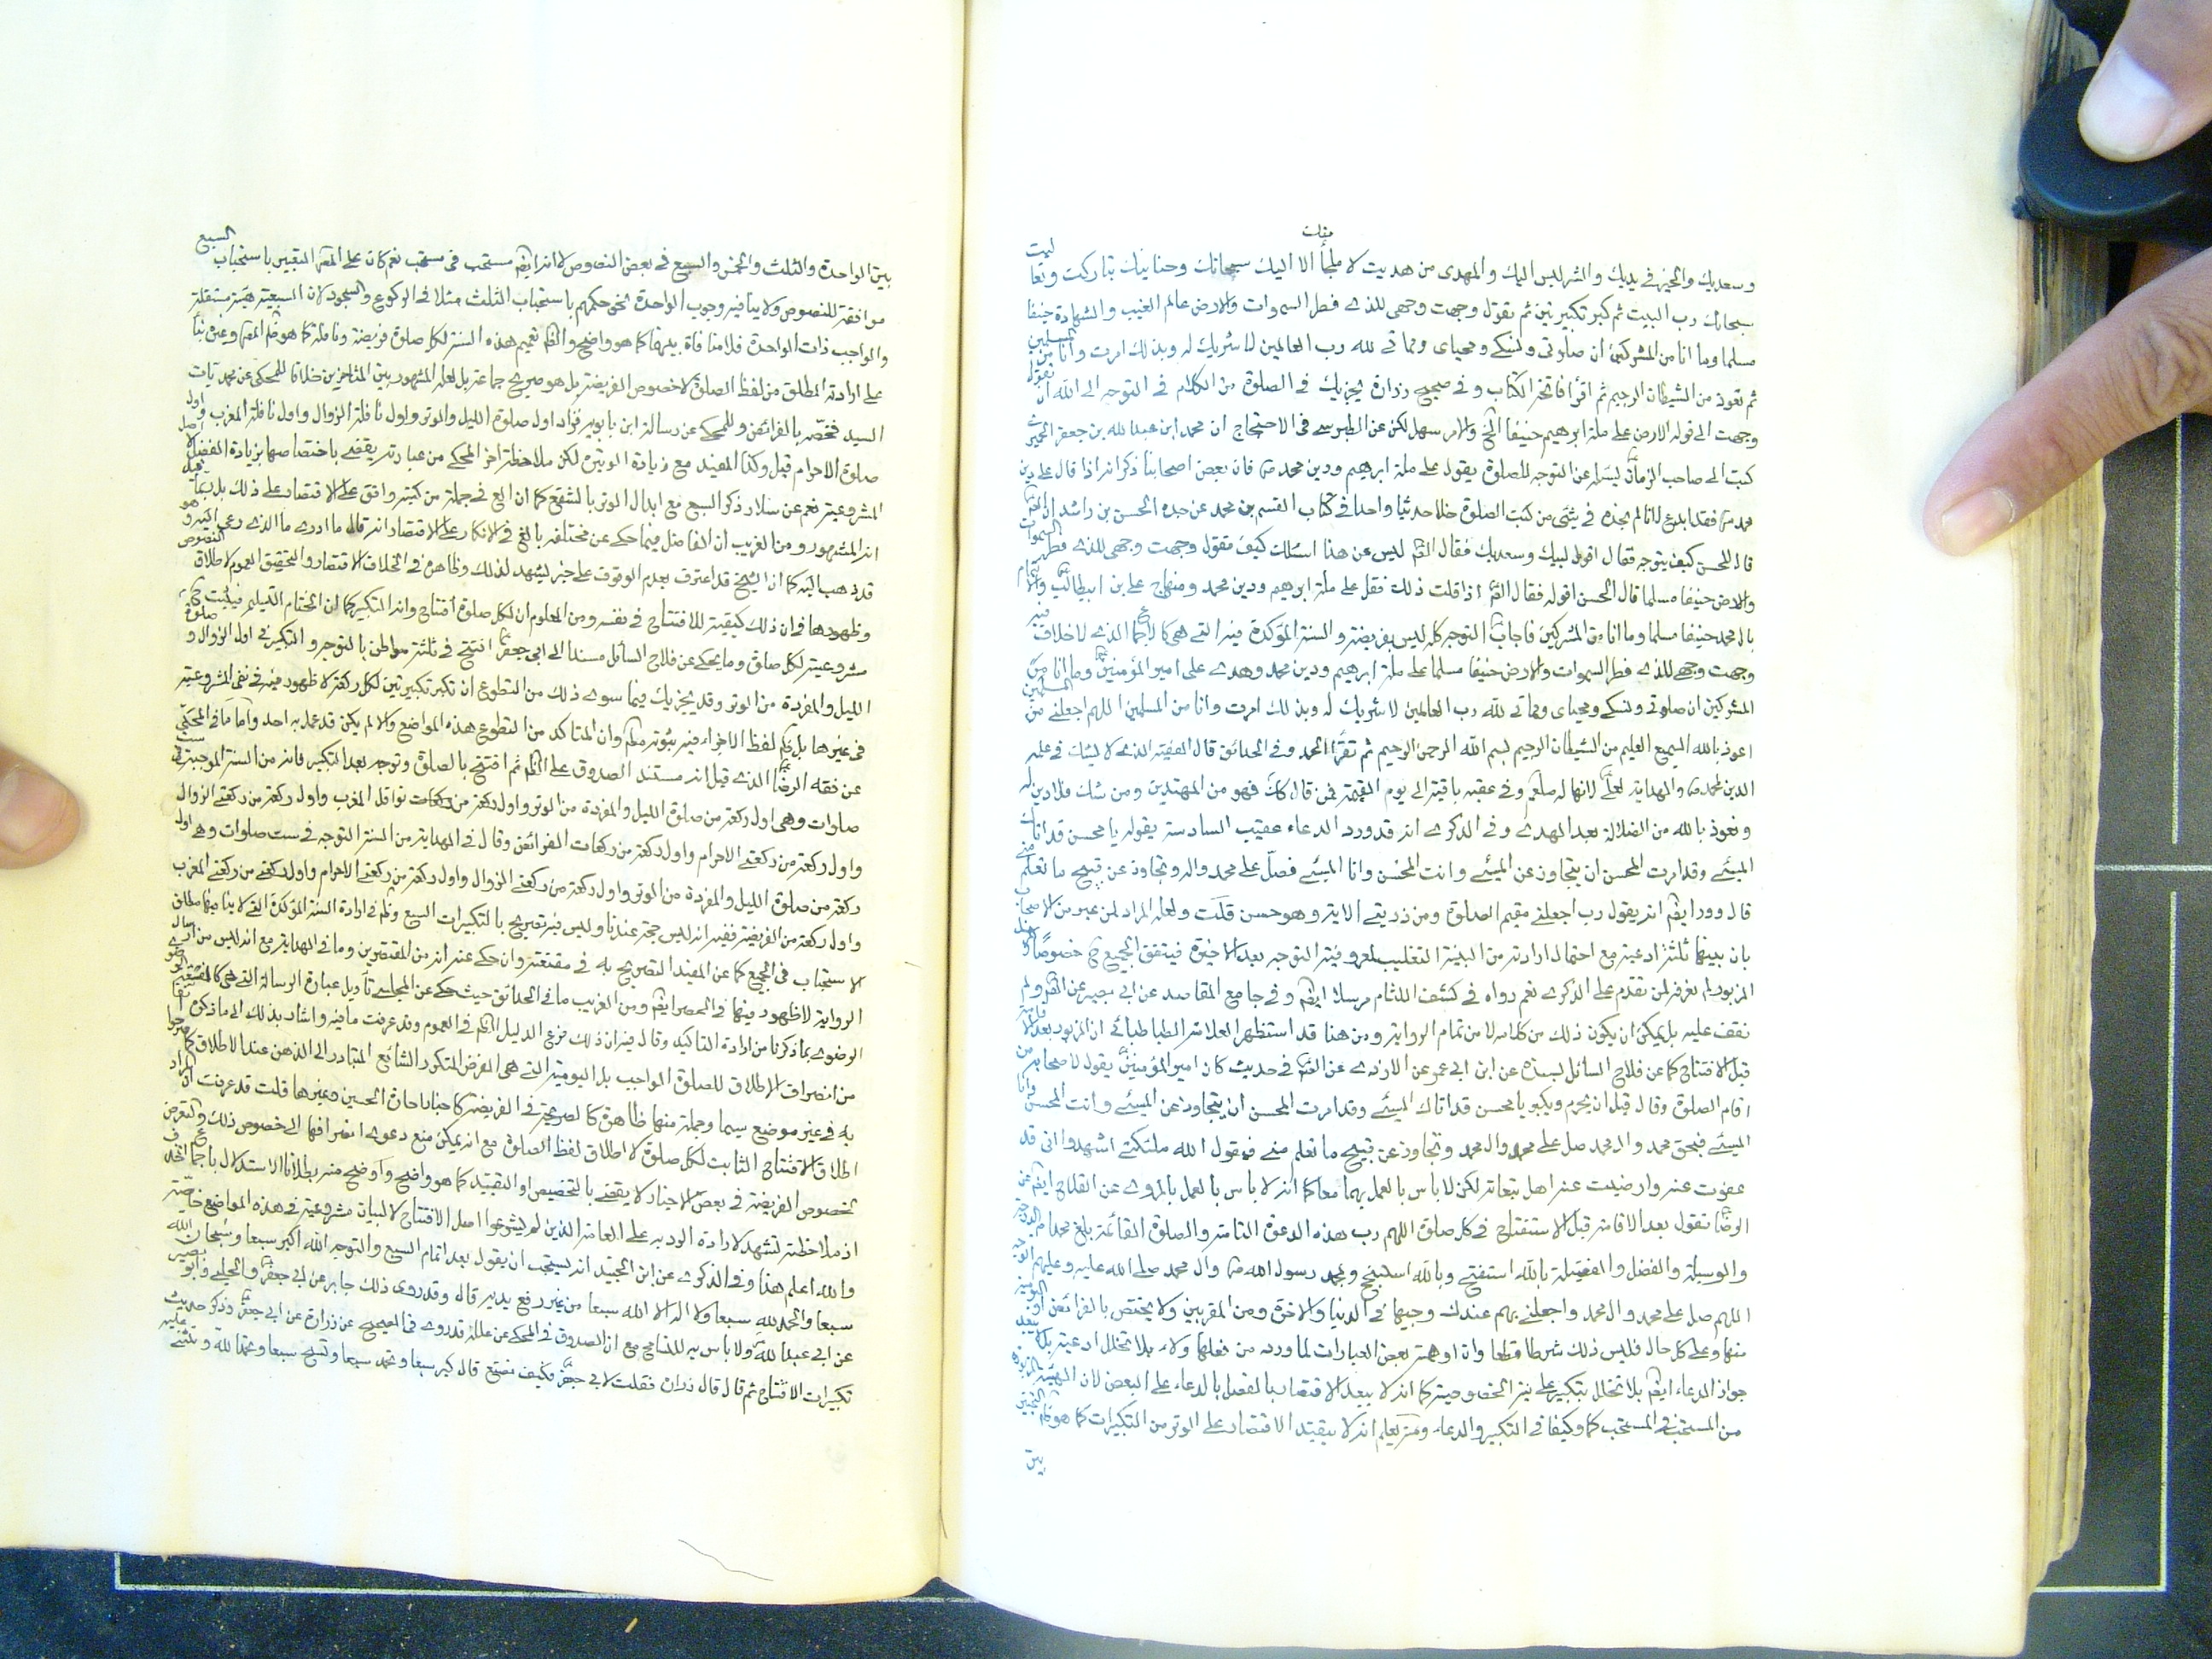 وسعديك والخير في يديك والشر ليس اليك والمهدى من هديت لا ملجأ الا اليك سبحانك وحنانيك تباركت وتعا ليت
سبحانك رب البيت ثم كبر تكبيرتين ثم تقول وجهت وجهى للذى فطر السموات والارض عالم الغيب والشهادة حنيفا
مسلما وما انا من المشركين ان صلوتى ونسكى ومحياى ومماتى لله رب العالمين لا شريك له وبذلك امرت وانا من المسلمين
ثم تعوذ من الشيطان الرجيم ثم اقرأ فاتحة الكتاب وفى صحيح زرارة يجزيك فى الصلوة من الكلام فى التوجه الى الله ان تقول
وجهت الى قوله الارض على ملة ابرهيم حنيفا الخ والامر سهل لكن عن الطبرسى فى الاحتجاج ان محمد ابن عبدالله بن جعفر الحميرى
كتب الى صاحب الزمان يسئله عن التوجه للصلوة يقول على ملة ابرهيم ودين محمد ص فان بعض اصحابنا ذكر انه اذا قال على دين
محمد ص فقد ابدع لانا لم نجده فى شئ من كتب الصلوة خلا حديثا واحدا فى كتاب القسم بن محمد عن جده الحسن بن راشد ان الصم
قال للحسن كيف تتوجه فقال اقول لبيك وسعديك فقال الصم ليس عن هذا اسئلك كيف تقول وجهت وجهى للذى فطر السموات
والارض حنيفا مسلما قال الحسن اقوله فقال الصم اذا قلت ذلك فقل على ملة ابرهيم ودين محمد ومنهاج على بن ابيطالب والايتمام
بال محمد حنيفا مسلما وما انا من المشركين فاجاب التوجه كله ليس بفريضة والسنة المؤكدة فيه التى هى كالاجماع الذى لا خلاف فيه
وجهت وجهى للذى فطر السموات والارض حنيفا مسلما على ملة ابرهيم ودين محمد وهدى على امير المؤمنين وما انا من
المشركين ان صلوتى ونسكى ومحياى ومماتى لله رب العالمين لا شريك له وبذلك امرت وانا من المسلمين اللهم اجعلنى من المسلمين
اعوذ بالله السميع العليم من الشيطان الرجيم بسم الله الرحمن الرحيم ثم تقرأ الحمد وفى الحدائق قال الفقيه الذى لا يشك فى علمه
الدين لمحمد ص والهداية لعلى لانها له صلعم وفى عقبه باقية الى يوم القيمة فمن قال كك فهو من المهتدين ومن شك فلا دين له
ونعوذ بالله من الضلالة بعد الهدى وفى الذكرى انه قد ورد الدعاء عقيب السادسة بقوله يا محسن قد اتاك
المسئ وقد امرت المحسن ان يتجاوز عن المسئ وانت المحسن وانا المسئ فصل على محمد واله وتجاوز عن قبيح ما تعلم منى
قال وورد ايضم انه يقول رب اجعلنى مقيم الصلوة ومن ذريتى الاية وهو حسن قلت ولعله المراد لمن عبر من الاصحاب
بان بينها ثلثة ادعية مع احتمال ارادته من البينة التغليب لمعروفية التوجه بعد الاخيرة فيتفق الجميع ح خصوصا
المزبور لم نعرفه لمن تقدم على الذكرى نعم رواه فى كشف اللثام مرسلا ايضم وفى جامع المقاصد عن ابى بصير عن الصم ولم
نقف عليه بل يمكن ان يكون ذلك من كلامه لا من تمام الرواية ومن هنا قد استظهر العلامة الطباطبائى ان المزبور بعد الاقامة
قبل الافتتاح كما عن فلاح السائل بسنده عن ابن ابى عمير عن الازدى عن الصم فى حديث كان امير المؤمنين يقول لاصحابه من
اقام الصلوة وقال قبل ان يحرم ويكبر يا محسن قد اتاك المسئ وقد امرت المحسن ان يتجاوز عن المسئ وانت المحسن وانا
المسئ فبحق محمد وال محمد صل على محمد وال محمد وتجاوز عن قبيح ما تعلم منى فيقول الله ملئكتى اشهدوا انى قد
عفوت عنه وارضيت عنه اهل تبعاته لكن لا باس بالعمل بهما معا كما انه لا باس بالعمل بالمروى عن الفلاح ايضم عن
الرضا تقول بعد الاقامة قبل الاستفتاح فى كل صلوة اللهم رب هذه الدعوة التامة والصلوة القائمة بلغ محمدا ص الدرجة
والوسيلة والفضل والفضيلة بالله استفتح وبالله استنجح وبمحمد رسول الله ص وال محمد صلى الله عليه وعليهم اتوجه
اللهم صل على محمد وال محمد واجعلنى بهم عندك وجيها فى الدنيا والاخرة ومن المقربين ولا يختص بالفرائض
منها وعلى كل حال فليس ذلك شرطا قطعا وان اوهمته بعض العبارات لما ورد من فعلها ولاء بلا تخلل ادعية بل
جواز الدعاء ايضم بلا تخلل بتكبير على نية الخصوصية كما انه لا يبعد الاقتصار بالفصل بالدعاء على البعض لان الهيئة
من المستحب فى المستحب كما وكيفا فى التكبير والدعاء ومنه يعلم انه لا يتقيد الاقتصار على الوتر من التكبيرات كما هو
بين
بين الواحدة والثلث والخمس والسبع فى بعض النصوص لانه ايضم مستحب فى مستحب نعم كان على المصم التعبير باستحباب السبع
موافقة للنصوص ولا ينافيه وجوب الواحدة نحو حكمهم باستحباب الثلث مثلا فى الركوع والسجود لان السبعية هيئة مستقلة
والواجب ذات الواحدة فلا منافاة بينهما كما هو واضح والظم تعميم هذه السنة لكل صلوة فريضة ونافلة كما هو ظم المصم وغيره بناء
على ارادته المطلق من لفظ الصلوة لا خصوص الفريضة بل هو صريح جماعة بل لعله المشهور بين المتاخرين خلافا للمحكى عن محمديات
السيد فخصه بالفرائض وللمحكى عن رسالة ابن بابويه فزاد اول صلوة الليل والوتر واول نافلة الزوال واول نافلة المغرب واول
صلوة الاحرام قيل وكذا المفيد مع زيادة الوتيرة لكن ملاحظة اخر المحكى من عبارته يقضى باختصاصها بزيادة الفضل لا اصل
المشروعية نعم عن سلار ذكر السبع مع ابدال الوتر بالشفع كما ان الشيخ فى جملة من كتبه وافق على الاقتصار على ذلك بل ربما قيل
انه المشهور ومن الغريب ان الفاضل فيما حكى عن مختلفه بالغ فى الانكار على الاقتصار انه قال ما ادرى ما الذى دعى اليه و
قد ذهب اليه كما ان الشيخ قد اعترف بعدم الوقوف على خبر يشهد لذلك وظاهره فى الخلاف الاقتصار والتحقيق العموم لاطلاق النصوص
وظهورها فى ان ذلك كيفية للافتتاح فى نفسه ومن المعلوم ان لكل صلوة افتتاح وانه التكبير كما ان اختتام التسليم فيثبت ح
مشروعيته لكل صلوة وما يحكى عن فلاح السائل مسندا الى ابى جعفر افتتح فى ثلثة مواطن بالتوجه والتكبير فى اول الزوال و صلوة
الليل والمفردة من الوتر وقد يجزيك فيما سوى ذلك من التطوع ان تكبر تكبيرتين لكل ركعة لا ظهور فيه فى نفى المشروعية
فى غيرها بل ظم لفظ الاجزاء فيه ثبوته وان المتاكد من التطوع هذه المواضع والا لم يكن قد عمل به احد واما ما فى المحكى
عن فقه الرضا الذى قيل انه مستند الصدوق على الظم ثم افتتح بالصلوة وتوجه بعد التكبير فانه من السنة الموجبة فى ست
صلوات وهى اول ركعة من صلوة الليل والمفردة من الوتر واول ركعة من ركعات نوافل المغرب واول ركعة من ركعتى الزوال
واول ركعة من ركعتى الاحرام واول ركعة من ركعات الفرائض وقال فى الهداية من السنة التوجه فى ست صلوات وهى اول
ركعة من صلوة الليل والمفردة من الوتر واول ركعة من ركعتى الزوال واول ركعة من ركعتى الاحرام واول ركعة من ركعتى المغرب
واول ركعة من الفريضة ففيه انه ليس حجة عندنا وليس فيه تصريح بالتكبيرات السبع وظم فى ارادة السنة المؤكدة التى لا ينافيها مطلق
الاستحباب فى الجميع كما عن المفيد التصريح به فى مقنعته وان حكى عنه انه من المقتصرين وما فى الهداية مع انه ليس من
الرواية لا ظهور فيها فى الحصر ايضم ومن الغريب ما فى الحدائق حيث حكى عن المجلسى تاويل عبارة الرسالة التى هى كالفقه
الرضوى بما ذكرنا من ارادة التاكيد وقال فيه ان ذلك فرع الدليل الظم فى العموم وقد عرفت ما فيه واشار بذلك الى ما ذكره
من انصراف الاطلاق للصلوة الواجب بل اليومية التى هى الفرض المتكرر الشائع المتبادر الى الذهن عند الاطلاق كما
به فى غير موضع سيما وجملة منها ظاهرة كالصريحة فى الفريضة كاخبار احارة الحسين وغيرها قلت قد عرفت ان المراد
اطلاق الافتتاح الثابت لكل صلوة لا اطلاق لفظ الصلوة مع انه يمكن منع دعوى انصرافها الى خصوص ذلك والتعرض
لخصوص الفريضة فى بعض الاخبار لا يقضى بالتخصيص او التقييد كما هو واضح واوضح منه بطلانا الاستدلال باخبار
اذ ملاحظته تشهد لارادة الرد به على العامة الذين لم يشرعوا اصل الافتتاح لا لبيان مشروعيته فى هذه المواضع خاصة
والله اعلم هذا وفى الذكرى عن ابن الجنيد انه يستحب ان يقول بعد اتمام السبع والتوجه الله اكبر سبعا وسبحان الله
سبعا والحمد لله سبعا ولا اله الا الله سبعا من غير رفع يديه قال وقد روى ذلك جابر عن ابى جعفر والحلبى وابو بصير
عن ابى عبد الله ولا باس به للتسامح مع ان الصدوق فى المحكى عن علله قد روى فى الصحيح عن زرارة عن ابى جعفر وذكر حديث
تكبيرات الافتتاح ثم قال قال زرارة فقلت لابى جعفر فكيف نصنع قال كبر سبعا وتحمد سبعا وتسبح سبعا وتحمد الله وتثنى عليه